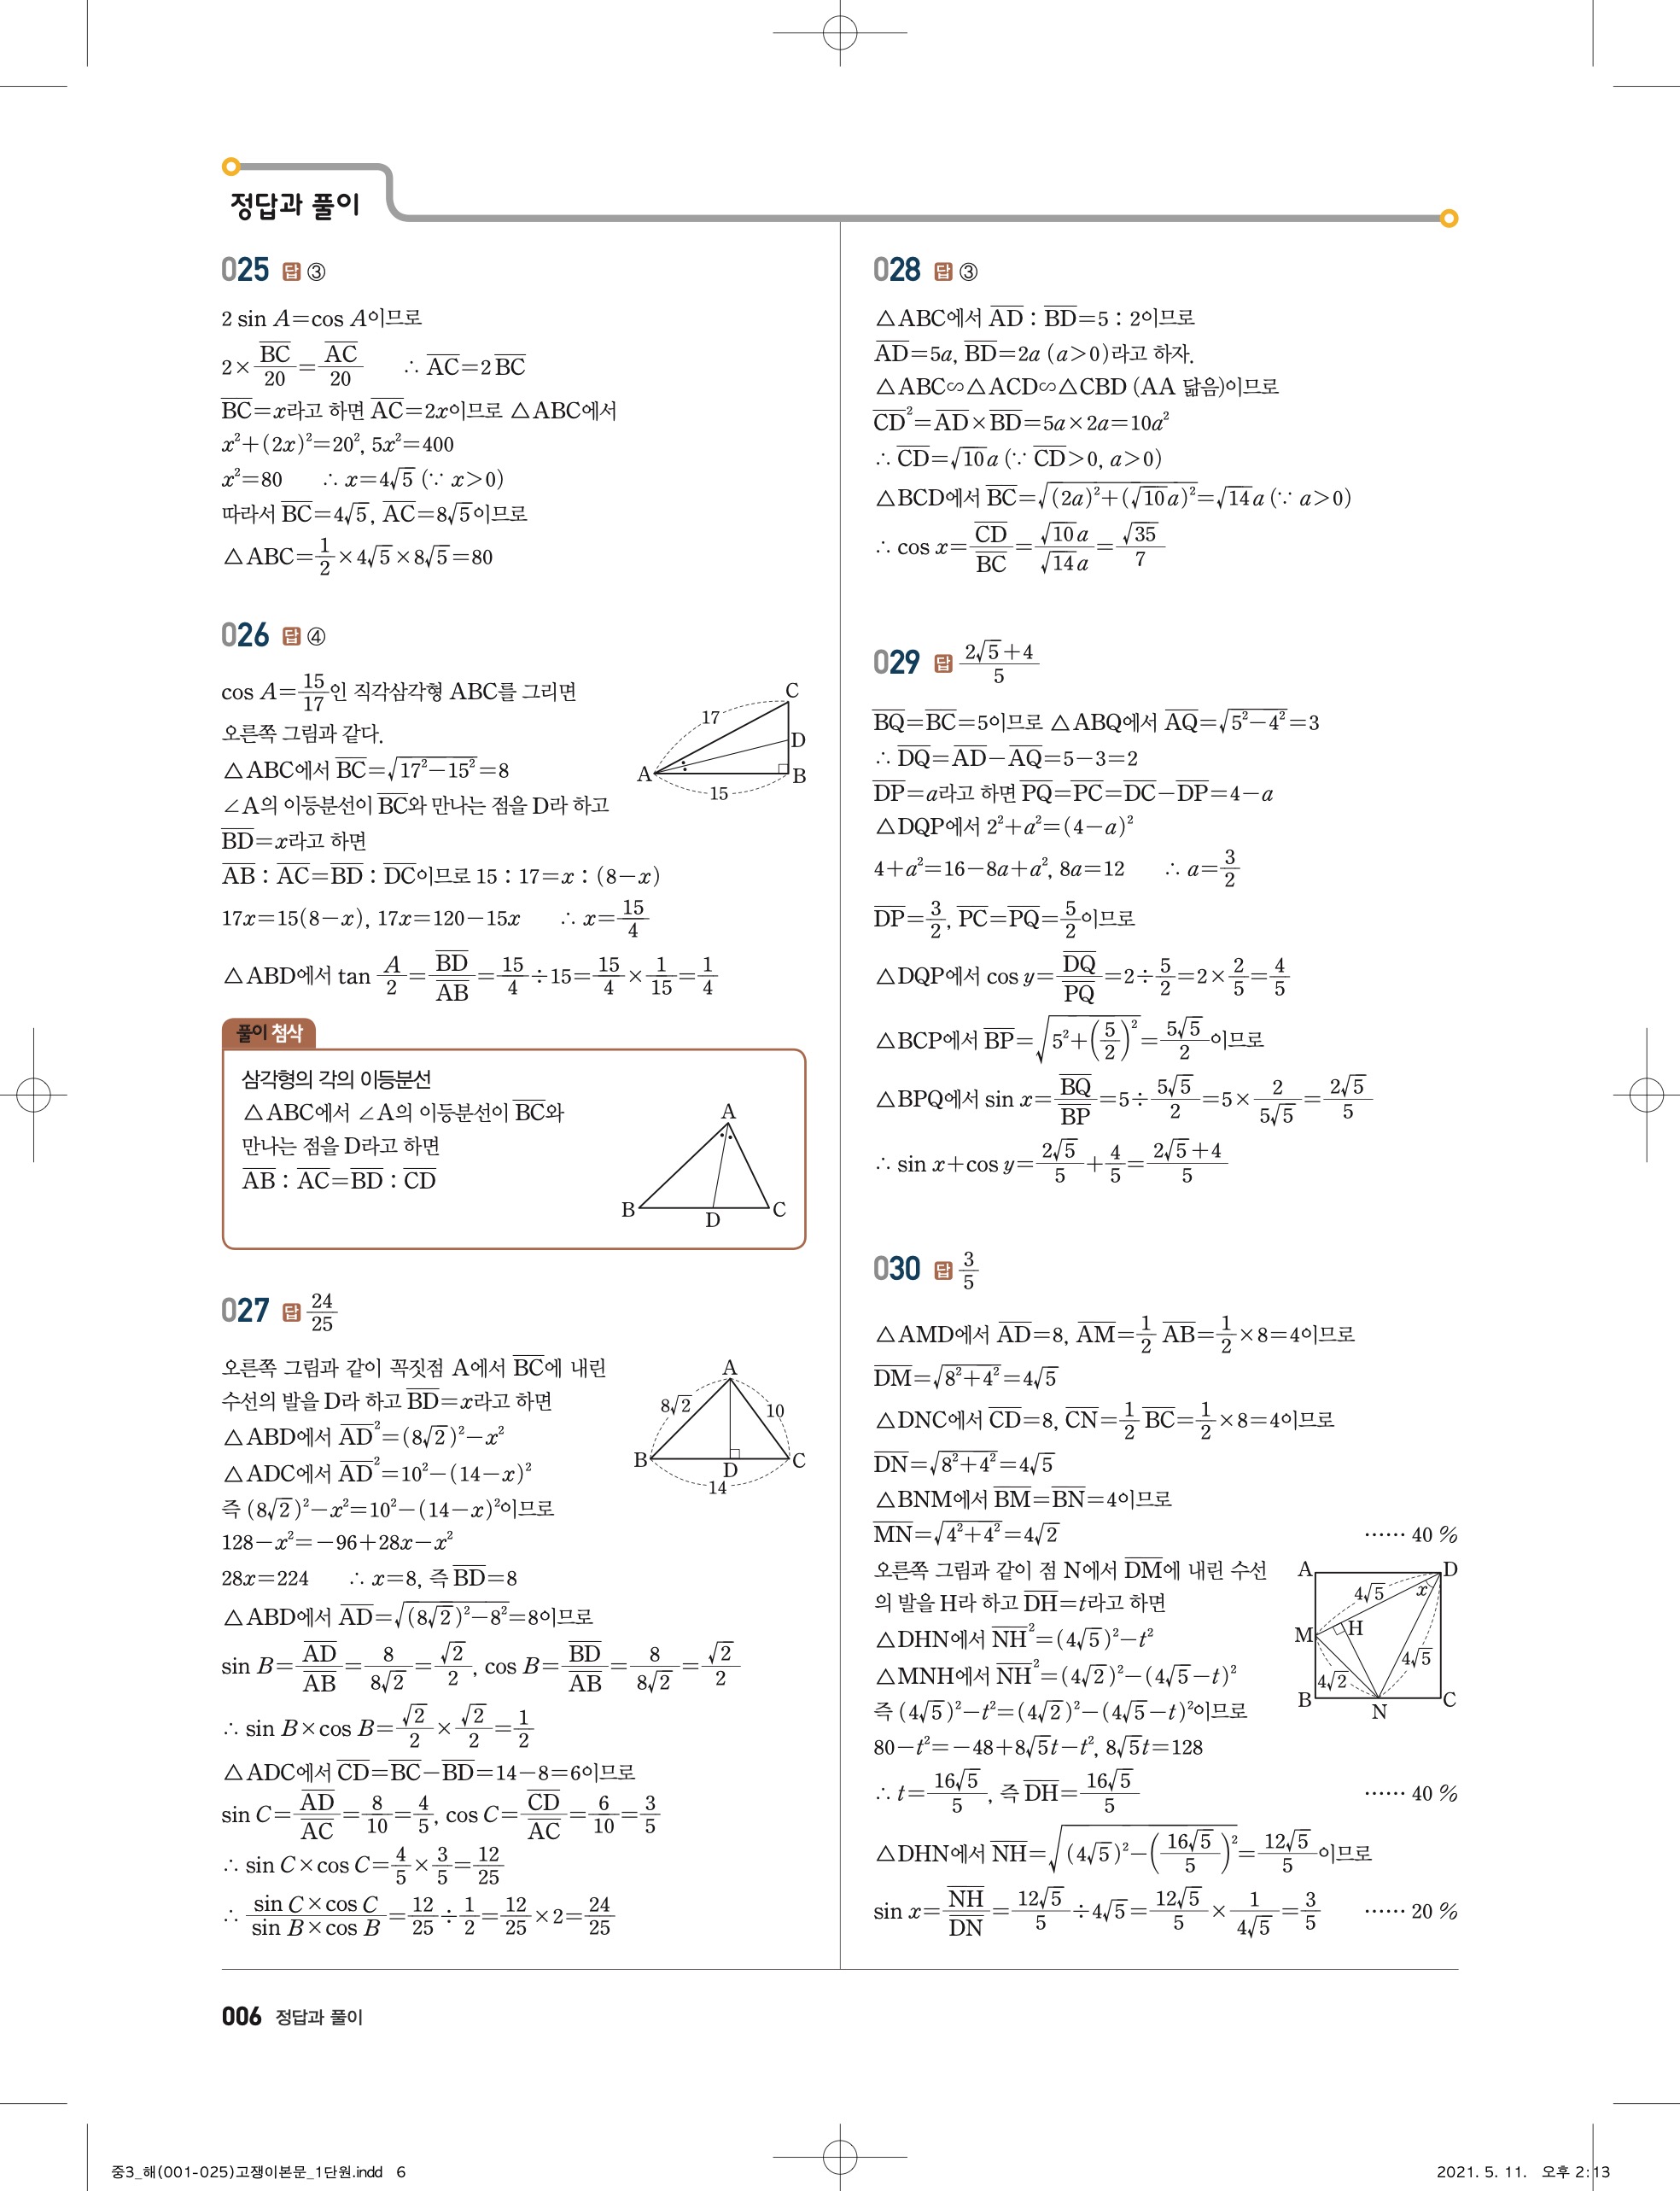 정답과 풀이
025 답 ③
2 sin A=cos A이므로
2×\overline{BC}/20=\overline{AC}/20 ∴ \overline{AC}=2\overline{BC}
\overline{BC}=x라고 하면 \overline{AC}=2x이므로 △ABC에서
x²+(2x)²=20², 5x²=400
x²=80 ∴ x=4√5 (∵ x>0)
따라서 \overline{BC}=4√5, \overline{AC}=8√5이므로
△ABC=1/2×4√5×8√5=80
026 답 ④
cos A=15/17인 직각삼각형 ABC를 그리면
오른쪽 그림과 같다.
△ABC에서 \overline{BC}=√(17²−15²)=8
∠A의 이등분선이 \overline{BC}와 만나는 점을 D라 하고
\overline{BD}=x라고 하면
\overline{AB} : \overline{AC}=\overline{BD} : \overline{DC}이므로 15 : 17=x : (8−x)
17x=15(8−x), 17x=120−15x ∴ x=15/4
△ABD에서 tan A/2=\overline{BD}/\overline{AB}=15/4÷15=15/4×1/15=1/4
C
17
D
A
B
15
풀이 첨삭
삼각형의 각의 이등분선
△ABC에서 ∠A의 이등분선이 \overline{BC}와
만나는 점을 D라고 하면
\overline{AB} : \overline{AC}=\overline{BD} : \overline{CD}
A
B
D
C
027 답 24/25
오른쪽 그림과 같이 꼭짓점 A에서 \overline{BC}에 내린
수선의 발을 D라 하고 \overline{BD}=x라고 하면
△ABD에서 \overline{AD}²=(8√2)²−x²
△ADC에서 \overline{AD}²=10²−(14−x)²
즉 (8√2)²−x²=10²−(14−x)²이므로
128−x²=−96+28x−x²
28x=224 ∴ x=8, 즉 \overline{BD}=8
△ABD에서 \overline{AD}=√((8√2)²−8²)=8이므로
sin B=\overline{AD}/\overline{AB}=8/8√2=√2/2, cos B=\overline{BD}/\overline{AB}=8/8√2=√2/2
∴ sin B×cos B=√2/2×√2/2=1/2
△ADC에서 \overline{CD}=\overline{BC}−\overline{BD}=14−8=6이므로
sin C=\overline{AD}/\overline{AC}=8/10=4/5, cos C=\overline{CD}/\overline{AC}=6/10=3/5
∴ sin C×cos C=4/5×3/5=12/25
∴ (sin C×cos C)/(sin B×cos B)=12/25÷1/2=12/25×2=24/25
A
8√2
10
B
D
C
14
028 답 ③
△ABC에서 \overline{AD} : \overline{BD}=5 : 2이므로
\overline{AD}=5a, \overline{BD}=2a (a>0)라고 하자.
△ABC∽△ACD∽△CBD (AA 닮음)이므로
\overline{CD}²=\overline{AD}×\overline{BD}=5a×2a=10a²
∴ \overline{CD}=√10a (∵ \overline{CD}>0, a>0)
△BCD에서 \overline{BC}=√((2a)²+(√10a)²)=√14a (∵ a>0)
∴ cos x=\overline{CD}/\overline{BC}=√10a/√14a=√35/7
029 답 (2√5+4)/5
\overline{BQ}=\overline{BC}=5이므로 △ABQ에서 \overline{AQ}=√(5²−4²)=3
∴ \overline{DQ}=\overline{AD}−\overline{AQ}=5−3=2
\overline{DP}=a라고 하면 \overline{PQ}=\overline{PC}=\overline{DC}−\overline{DP}=4−a
△DQP에서 2²+a²=(4−a)²
4+a²=16−8a+a², 8a=12 ∴ a=3/2
\overline{DP}=3/2, \overline{PC}=\overline{PQ}=5/2이므로
△DQP에서 cos y=\overline{DQ}/\overline{PQ}=2÷5/2=2×2/5=4/5
△BCP에서 \overline{BP}=√(5²+(5/2)²)=5√5/2이므로
△BPQ에서 sin x=\overline{BQ}/\overline{BP}=5÷5√5/2=5×2/5√5=2√5/5
∴ sin x+cos y=2√5/5+4/5=(2√5+4)/5
030 답 3/5
△AMD에서 \overline{AD}=8, \overline{AM}=1/2 \overline{AB}=1/2×8=4이므로
\overline{DM}=√(8²+4²)=4√5
△DNC에서 \overline{CD}=8, \overline{CN}=1/2 \overline{BC}=1/2×8=4이므로
\overline{DN}=√(8²+4²)=4√5
△BNM에서 \overline{BM}=\overline{BN}=4이므로
\overline{MN}=√(4²+4²)=4√2 …… 40 %
오른쪽 그림과 같이 점 N에서 \overline{DM}에 내린 수선
의 발을 H라 하고 \overline{DH}=t라고 하면
△DHN에서 \overline{NH}²=(4√5)²−t²
△MNH에서 \overline{NH}²=(4√2)²−(4√5−t)²
즉 (4√5)²−t²=(4√2)²−(4√5−t)²이므로
80−t²=−48+8√5t−t², 8√5t=128
∴ t=16√5/5, 즉 \overline{DH}=16√5/5 …… 40 %
△DHN에서 \overline{NH}=√((4√5)²−(16√5/5)²)=12√5/5이므로
sin x=\overline{NH}/\overline{DN}=12√5/5÷4√5=12√5/5×1/4√5=3/5 …… 20 %
A
D
4√5
x
M
H
4√5
4√2
B
N
C
006 정답과 풀이
중3_해(001-025)고쟁이본문_1단원.indd 6
2021. 5. 11. 오후 2:13